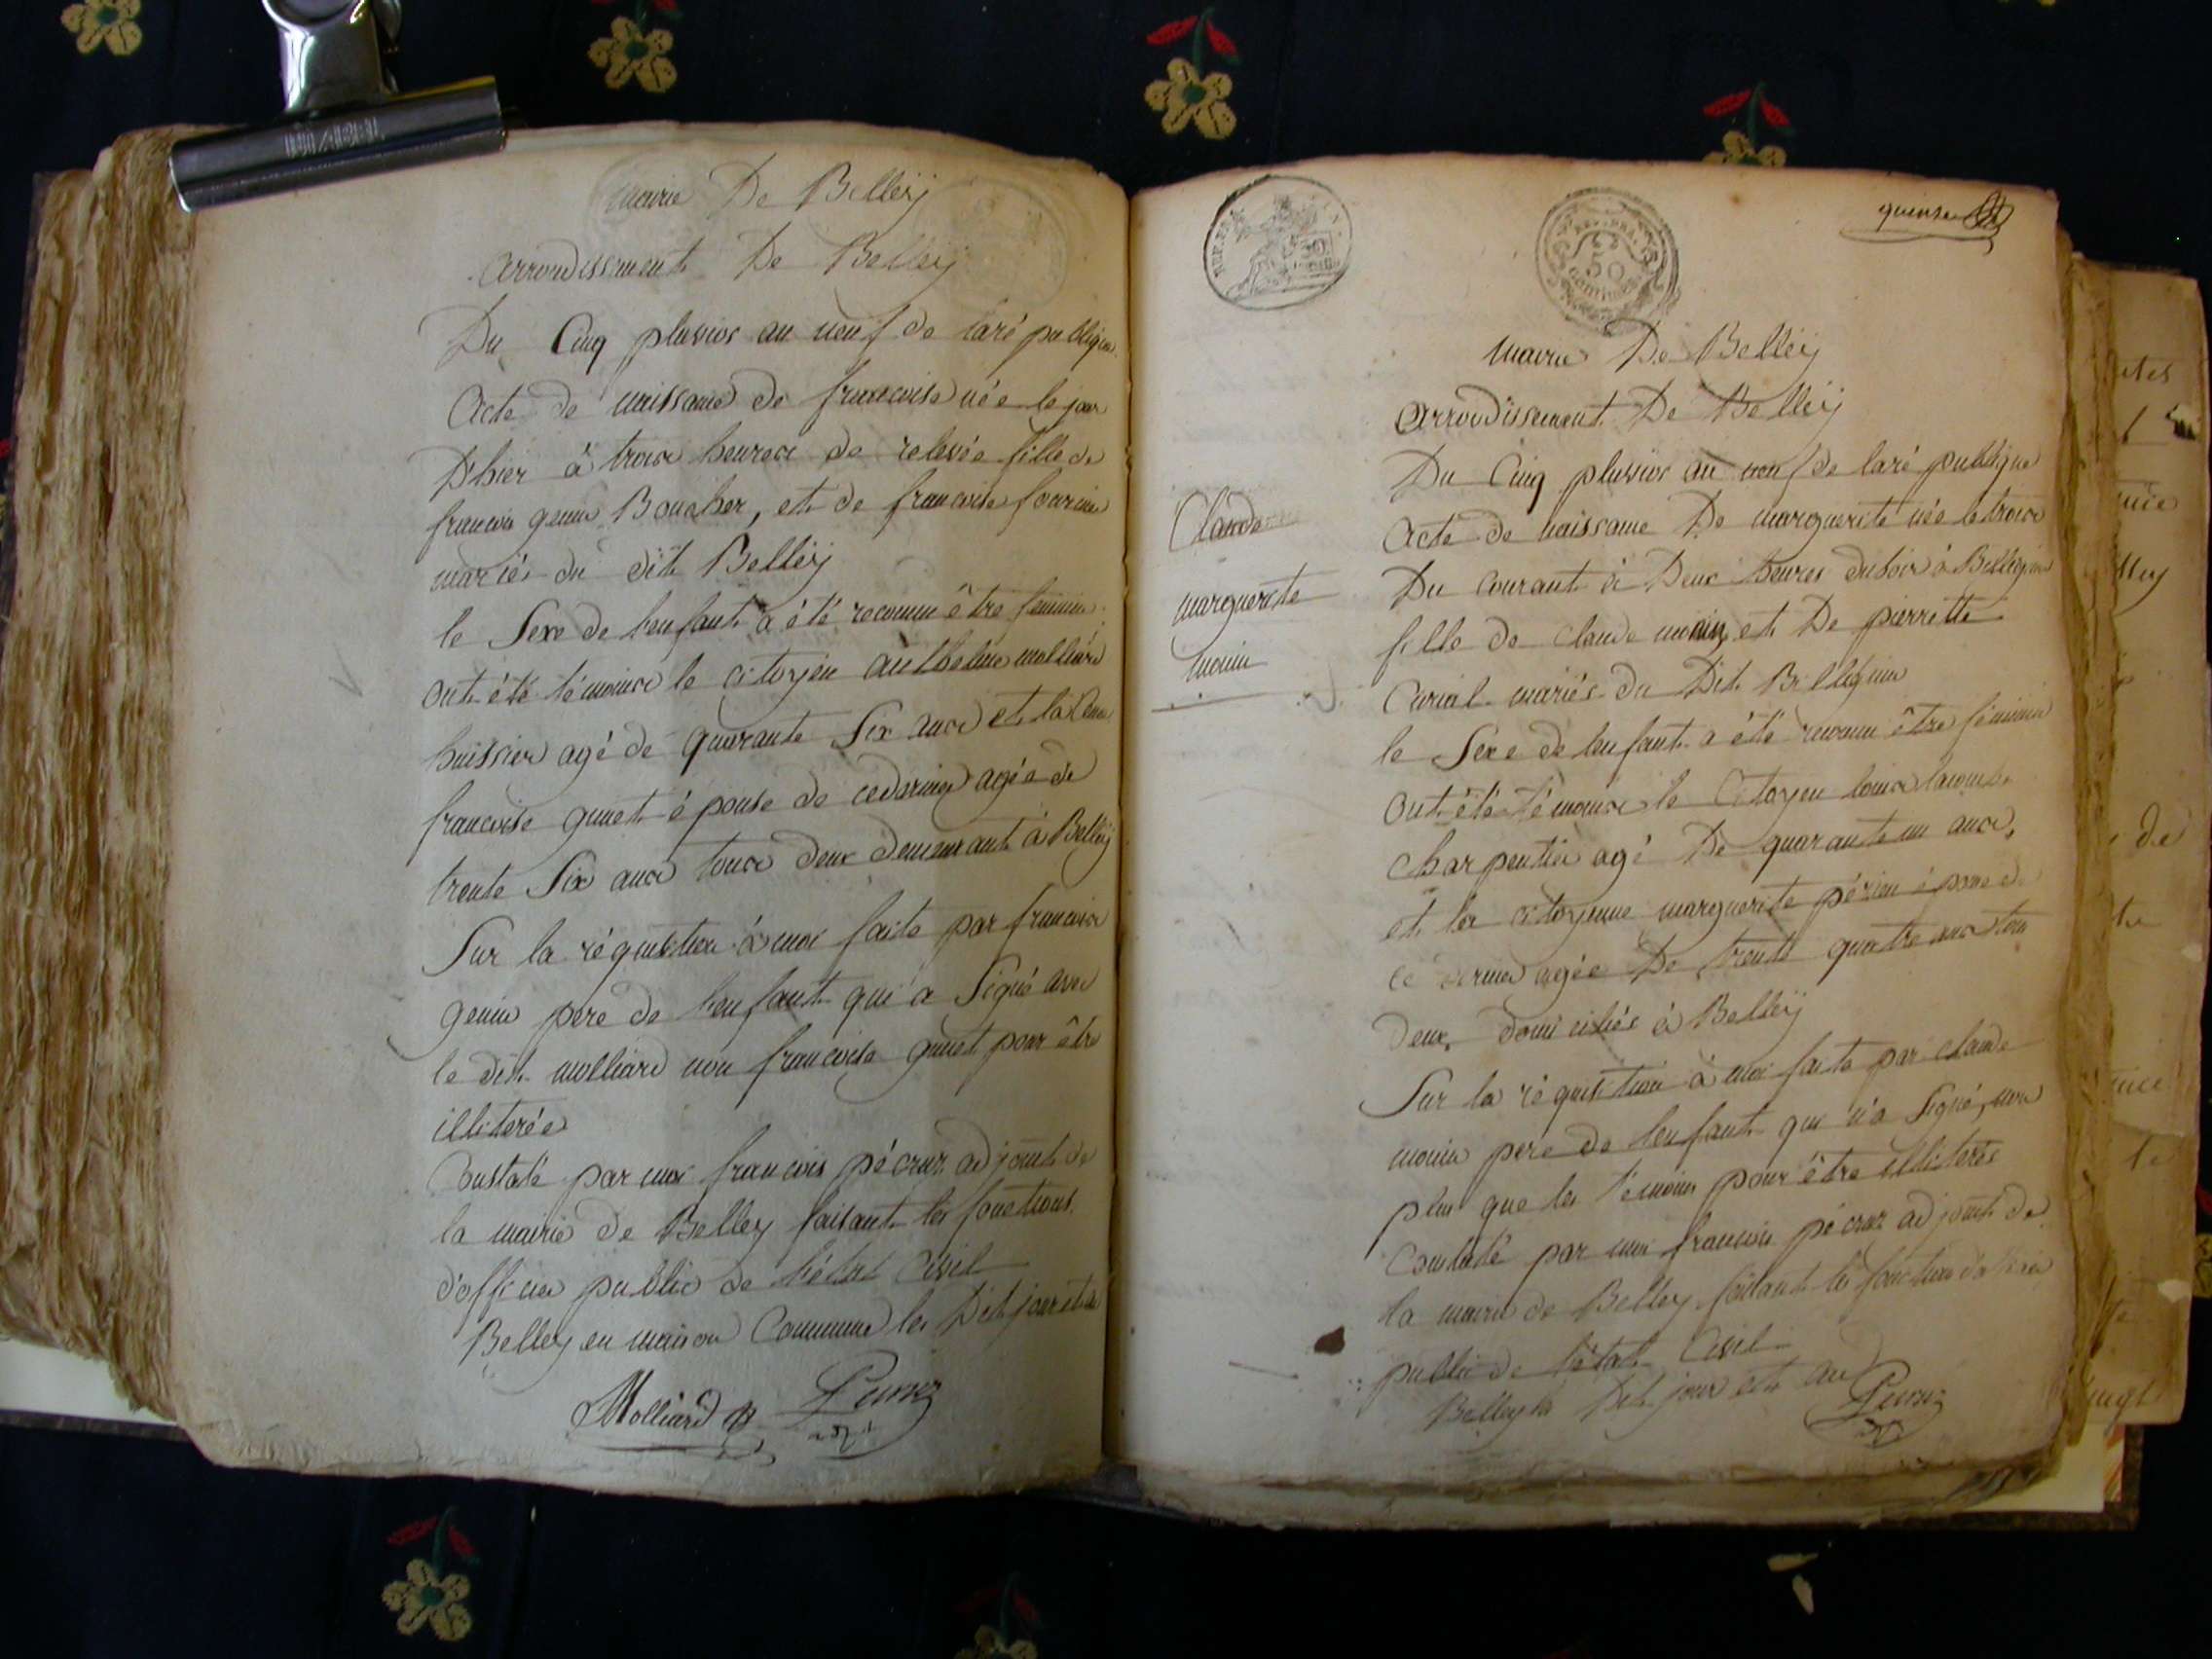 mairie De Belleÿ
arrondissement De Belleÿ
Du Cinq pluvios an neuf de laré publique
Acte de naissance de francoise née le jour
D'hier à trois heures de relevée fille de
francois genin Boucher, et de francoise
mariés du dit Belleÿ
le Sexe de lenfant a été reconnu être feminin
ont été témoins le citoyen anthelme molliard
huissier agé de quarante Six ans et la Cene
francoise guinet épouse de cedernier agée de
trente Six ans tous deux demeurant à Belleÿ
Sur la réquisition à moi faite par francois
genin pere de lenfant qui a Signé avec
le dit molliard non francoise guinet pour être
illiterée
Constaté par moi francois pécruz adjoint de
la mairie de Belley faisant les fonctions
d'officier public de l'état Civil
Belley en maison Commune les Dit jour et an
Molliard
quinze
REP. FRA.
50
centimes
mairie De Belleÿ
arrondissement De Belleÿ
Du Cinq pluvios an neuf de laré publique
Acte de naissance De marguerite née le trois
Du Courant à Deux heures du soir à Billignin
fille de Claude monin et De pierrette
Curial mariés du Dit Billignin
le Sexe de lenfant a été reconnu être féminin
ont été témoins le Citoyen louis lacombe
charpentier agé De quarante un ans,
et la citoyenne marguerite épouse de
ce dernier agée De trente quatre ans tous
deux domiciliés à Belleÿ
Sur la réquisition à moi faite par claude
monin pere de lenfant qui n'a Signé, non
plus que les témoins pour être illiterés
Constaté par moi francois pécruz adjoint de
la mairie de Belley faisant les fonctions d'officier
public de l'état Civil
Belley les Dit jour et an
Claude
marguerite
monin